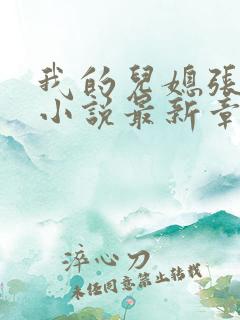 我的兒媳張
小说最新章
淬心刀
未经同意禁止转载